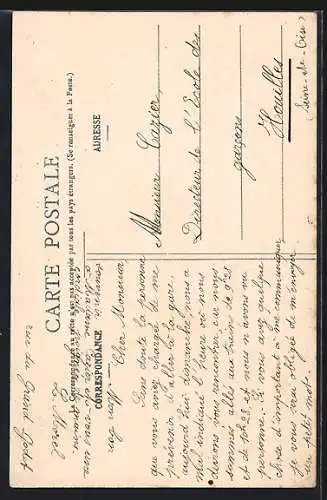 CARTE POSTALE
La Correspondance au recto n'est pas acceptée par tous les pays étrangers. (Se renseigner à la Poste.)
CORRESPONDANCE
ADRESSE
Cher Monsieur,
Sans doute la personne
que vous aviez chargé de me
prévenir d'aller à la gare
aujourd'hui dimanche, nous a
mal indiqué l'heure où nous
devions vous rencontrer, car nous
sommes allés au train de 9h28
et de 10h28, et nous n'avons vu
personne. Si vous avez quelque
chose d'important à me communiquer
je vous serai obligé de m'envoyer
un petit mot.
Monsieur Cazier,
Directeur de l'Ecole des
garçons
Houilles
(Seine-et-Oise)